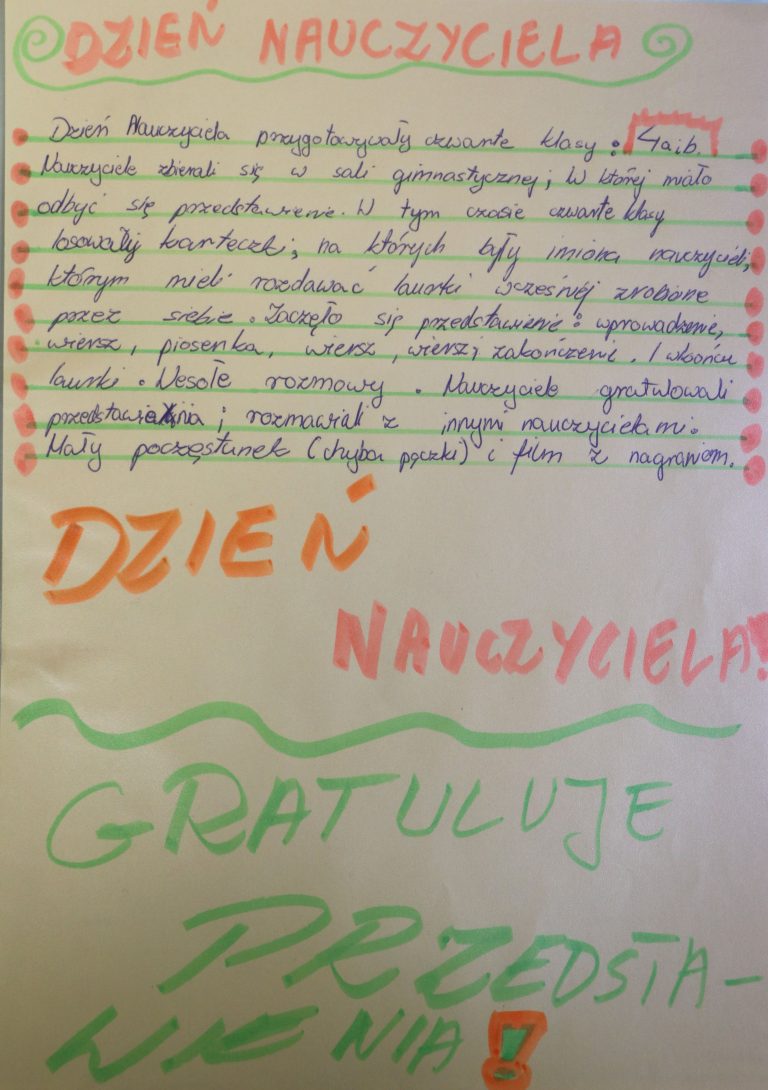 DZIEŃ NAUCZYCIELA
Dzień Nauczyciela przygotowywały czwarte klasy: 4aib.
Nauczyciele zbierali się w sali gimnastycznej; W której miało
odbyć się przedstawienie. W tym czasie czwarte klasy
losowały karteczki, na których były imiona nauczycieli,
którym mieli rozdawać laurki wcześniej zrobione
przez siebie. Zaczęło się przedstawienie: wprowadzenie,
wiersz, piosenka, wiersz, wiersz i zakończenie. I wkońcu
laurki. Wesołe rozmowy. Nauczyciele gratulowali
przedstawienia i rozmawiali z innymi nauczycielami.
Mały poczęstunek (chyba pączki) i film z nagraniem.
DZIEŃ
NAUCZYCIELA!
GRATULUJE
PRZEDSTA-
WIENIA!